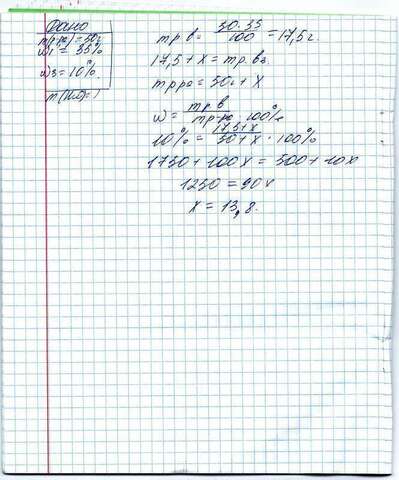 Дано
m(р-ра) = 50г
ω1 = 35%
ω2 = 10%
m(H2O) = ?
mр.в = 50·35/100 = 17,5г.
17,5 + x = mр.в2.
mр.ра = 50г + x
ω = mр.в/mр-ра · 100%
10% = 17,5+x/50+x · 100%
1750 + 100x = 500 + 10x
1250 = 90x
x = 13,8.